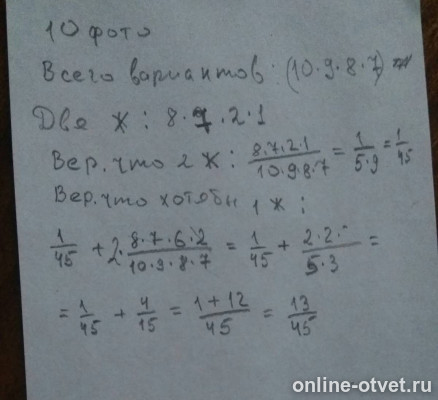 10 фото
Всего вариантов: (10·9·8·7)
Две Ж: 8·7·2·1
Вер. что 2 Ж: 8·7·2·1/10·9·8·7 = 1/5·9 = 1/45
Вер. что хотябы 1 Ж:
1/45 + 2·8·7·6·2/10·9·8·7 = 1/45 + 2·2·/5·3 =
= 1/45 + 4/15 = 1+12/45 = 13/45
online-otvet.ru